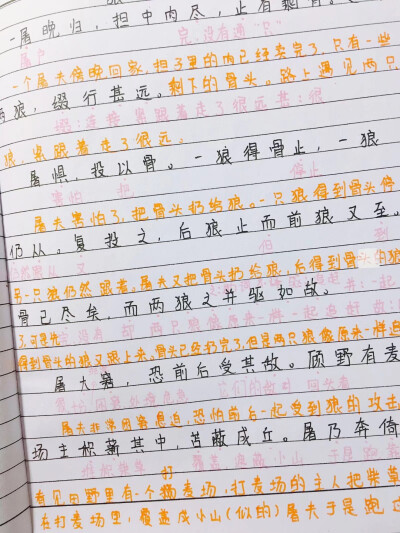 屠晚归，担中内尽，止有剩
屠户 完，没有 通“只”
一个屠夫傍晚回家，担子里的肉已经卖完了，只有一些
两狼，缀行甚远。剩下的骨头。路上遇见两只
缀：连接 紧跟着走了很远 甚：很
狼，紧跟着走了很远。
屠惧，投以骨。一狼得骨止，一狼
害怕 把 停止
屠夫害怕了，把骨头扔给狼。一只狼得到骨头停
仍从。复投之，后狼止而前狼又至。
但 到
另一只狼仍然跟着。屠夫又把骨头扔给狼，后得到骨头的狼
骨已尽矣，而两狼之并驱如故。
了，可是先
得到骨头的狼又跟上来。骨头已经扔完了，但是两只狼像原来一样追
屠大窘，恐前后受其敌。顾野有麦
屠夫非常困窘急迫，恐怕前后一起受到狼的攻击
场主积薪其中，苫蔽成丘。屠乃奔倚
看见田野里有一个打麦场，打麦场的主人把柴草
在打麦场里，覆盖成小山(似的)屠夫于是跑过